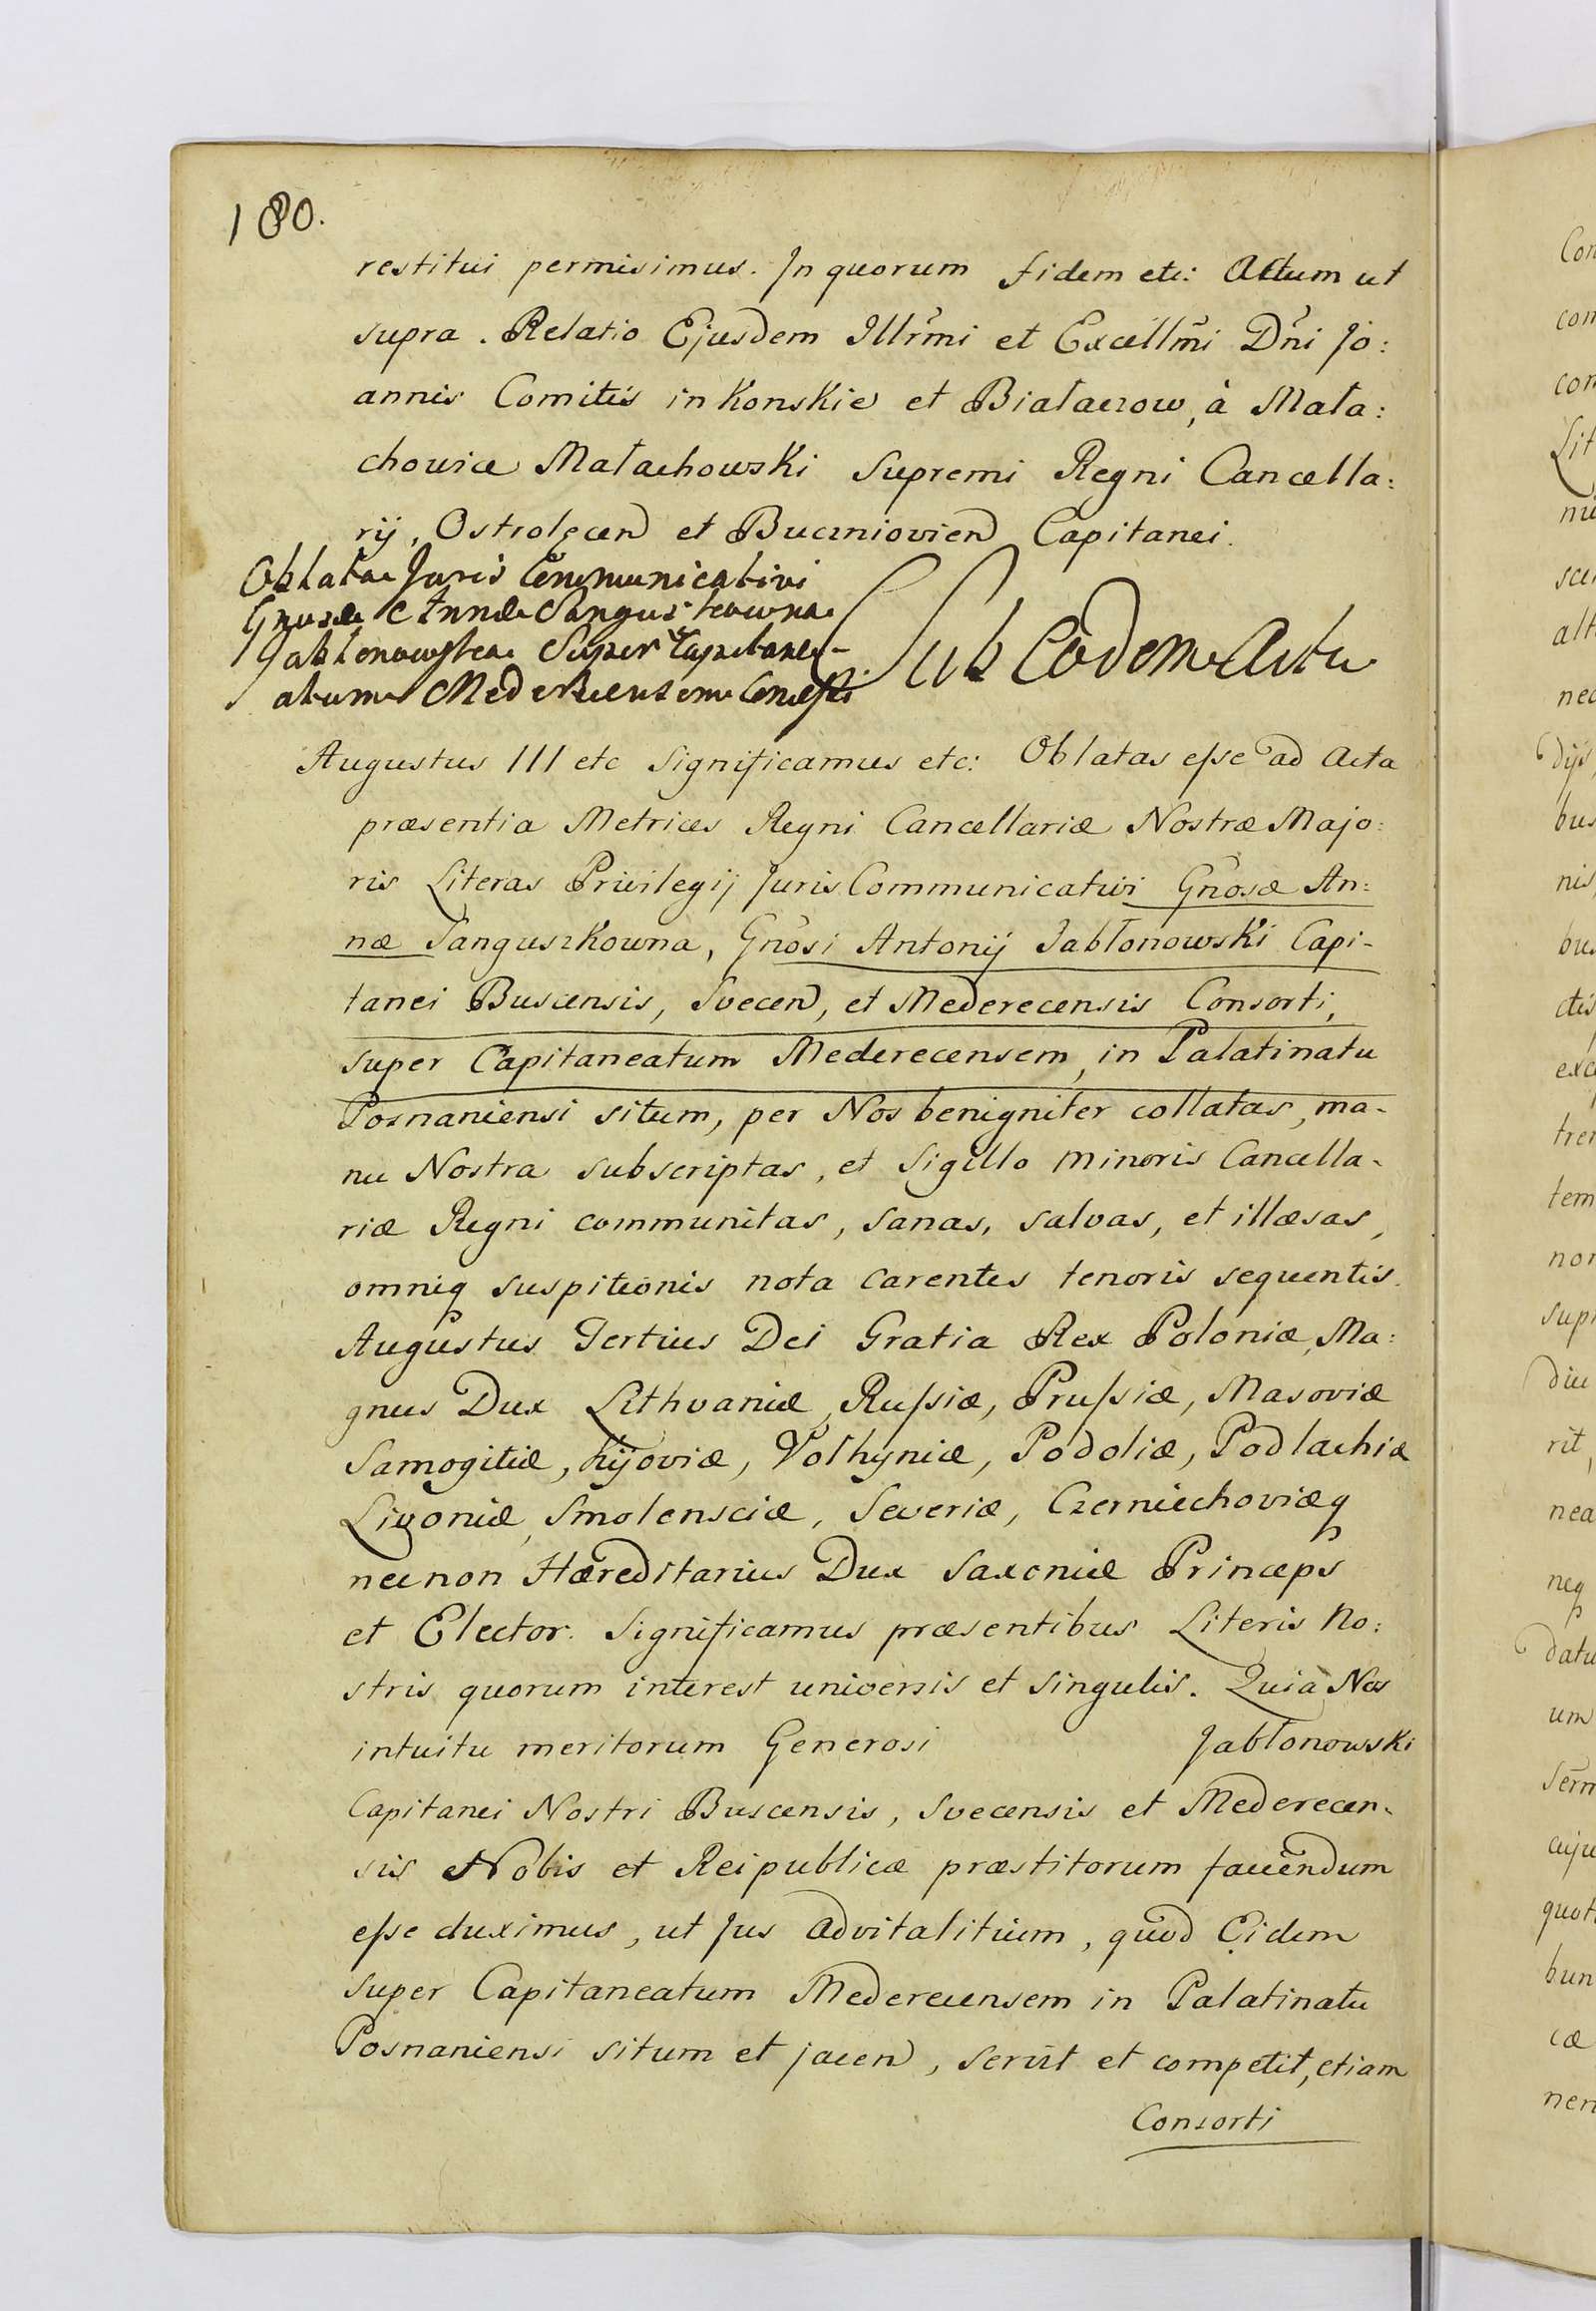 180.
restitui permisimus. In quorum fidem etc: Actum ut
supra. Relatio Ejusdem Illrmi et Excellmi Dni Jo:
annis Comitis in Konskie et Białaczow, à Mała:
chowice Małachowski Supremi Regni Cancella:
rij, Ostrolęcen et Buczniovien Capitanei.
Oblata Juris Communicativi
Gnosæ Annæ Sanguszkowna
Jabłonowska Super Capitane-
atum Mederecensem
Sub Eodem Actu
Augustus III etc Significamus etc: Oblatas esse ad Acta
præsentia Metrices Regni Cancellariæ Nostræ Majo:
ris Literas Privilegij Juris Communicativi Gnosæ An:
næ Sanguszkowna, Gnosi Antonij Jabłonowski Capi-
tanei Buscensis, Svecen, et Mederecensis Consorti,
super Capitaneatum Mederecensem, in Palatinatu
Posnaniensi situm, per Nos benigniter collatas, ma-
nu Nostra subscriptas, et Sigillo Minoris Cancella-
riæ Regni communitas, sanas, salvas, et illæsas,
omniq suspitionis nota carentes tenoris sequentis.
Augustus Tertius Dei Gratia Rex Poloniæ, Ma:
gnus Dux Lithvaniæ, Russiæ, Prussiæ, Masoviæ
Samogitiæ, Kijoviæ, Volhyniæ, Podoliæ, Podlachiæ
Livoniæ, Smolensciæ, Severiæ, Czerniechoviæq
necnon Hæreditarius Dux Saxoniæ Princeps
et Elector. Significamus præsentibus Literis No:
stris quorum interest universis et singulis. Quia Nos
intuitu meritorum Generosi Jabłonowski
Capitanei Nostri Buscensis, Svecensis et Mederecen-
sis Nobis et Reipublicæ præstitorum faciendum
esse duximus, ut Jus advitalitium, quod Eidem
super Capitaneatum Mederecensem in Palatinatu
Posnaniensi situm et jacen, servit et competit, etiam
Consorti